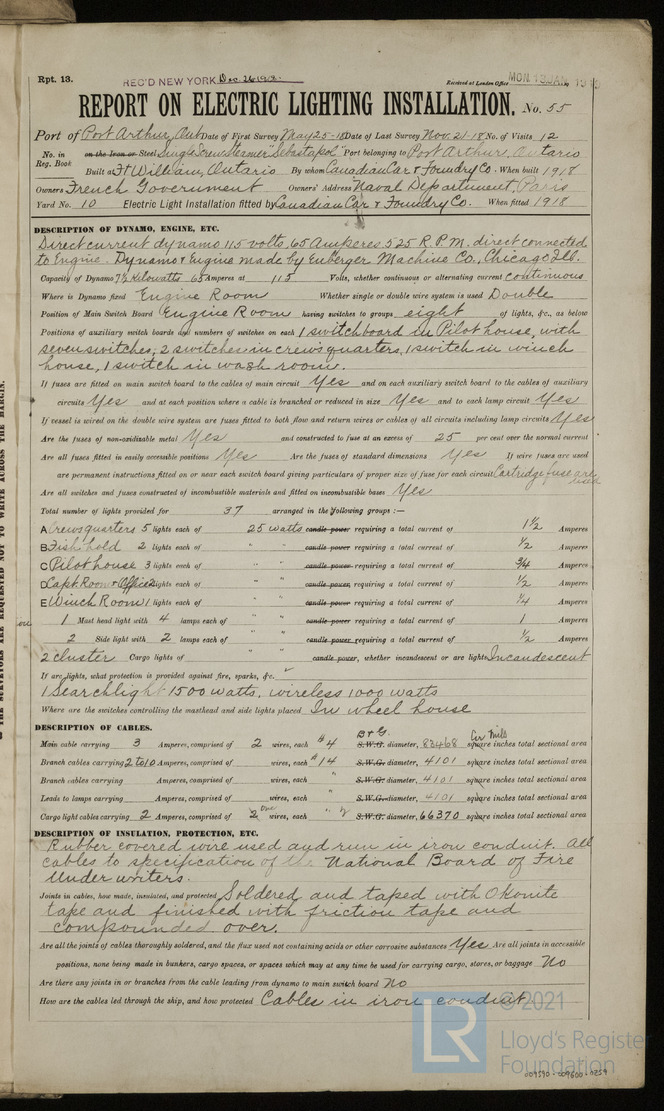 Rpt. 13. REC'D NEW YORK Dec. 26 1918 Received at London Office MON. 13 JAN. 191
REPORT ON ELECTRIC LIGHTING INSTALLATION. No. 55
Port of Port Arthur, Ont Date of First Survey May 25-18 Date of Last Survey Nov. 21-18 No. of Visits 12
No. in Reg. Book on the Iron or Steel Single Screw Steamer "Sebastapol" Port belonging to Port Arthur, Ontario
Built at Ft William, Ontario By whom Canadian Car & Foundry Co. When built 1918
Owners French Government Owners' Address Naval Department, Paris
Yard No. 10 Electric Light Installation fitted by Canadian Car & Foundry Co. When fitted 1918
DESCRIPTION OF DYNAMO, ENGINE, ETC.
Direct current dynamo 115 volts, 65 Amperes 525 R.P.M. direct connected
to Engine. Dynamo & Engine made by Enberger Machine Co., Chicago Ill.
Capacity of Dynamo 7½ Kilowatts 65 Amperes at 115 Volts, whether continuous or alternating current continuous
Where is Dynamo fixed Engine Room Whether single or double wire system is used Double
Position of Main Switch Board Engine Room having switches to groups eight of lights, &c., as below
Positions of auxiliary switch boards and numbers of switches on each 1 switchboard in Pilot house, with
seven switches, 2 switches in crews quarters, 1 switch in winch
house, 1 switch in wash room.
If fuses are fitted on main switch board to the cables of main circuit Yes and on each auxiliary switch board to the cables of auxiliary
circuits Yes and at each position where a cable is branched or reduced in size Yes and to each lamp circuit Yes
If vessel is wired on the double wire system are fuses fitted to both flow and return wires or cables of all circuits including lamp circuits Yes
Are the fuses of non-oxidizable metal Yes and constructed to fuse at an excess of 25 per cent over the normal current
Are all fuses fitted in easily accessible positions Yes Are the fuses of standard dimensions Yes If wire fuses are used
are permanent instructions fitted on or near each switch board giving particulars of proper size of fuse for each circuit Cartridge fuse are used
Are all switches and fuses constructed of incombustible materials and fitted on incombustible bases Yes
Total number of lights provided for 37 arranged in the following groups :—
A Crews quarters 5 lights each of 25 watts candle power requiring a total current of 1½ Amperes
B Fish hold 2 lights each of " " candle power requiring a total current of ½ Amperes
C Pilot house 3 lights each of " " candle power requiring a total current of ¾ Amperes
D Capt. Room & Office 2 lights each of " " candle power requiring a total current of ½ Amperes
E Winch Room 1 lights each of " " candle power requiring a total current of ¼ Amperes
1 Mast head light with 4 lamps each of " " candle power requiring a total current of 1 Amperes
2 Side light with 2 lamps each of " " candle power requiring a total current of ½ Amperes
2 cluster Cargo lights of candle power, whether incandescent or arc lights Incandescent
If arc lights, what protection is provided against fire, sparks, &c.
1 Searchlight 1500 watts, wireless 1000 watts
Where are the switches controlling the masthead and side lights placed In wheel house
DESCRIPTION OF CABLES.
Main cable carrying 3 Amperes, comprised of 2 wires, each #4 B & G. S.W.G. diameter, 83468 Cir Mils square inches total sectional area
Branch cables carrying 2 to 10 Amperes, comprised of wires, each #14 S.W.G. diameter, 4101 square inches total sectional area
Branch cables carrying Amperes, comprised of wires, each " S.W.G. diameter, 4101 square inches total sectional area
Leads to lamps carrying Amperes, comprised of wires, each " S.W.G. diameter, 4101 square inches total sectional area
Cargo light cables carrying 2 Amperes, comprised of 2 wires, each " S.W.G. diameter, 66370 square inches total sectional area
DESCRIPTION OF INSULATION, PROTECTION, ETC.
Rubber covered wire used and run in iron conduit. All
cables to specification of the National Board of Fire
Underwriters.
Joints in cables, how made, insulated, and protected Soldered and taped with Okonite
tape and finished with friction tape and
compounded over.
Are all the joints of cables thoroughly soldered, and the flux used not containing acids or other corrosive substances Yes Are all joints in accessible
positions, none being made in bunkers, cargo spaces, or spaces which may at any time be used for carrying cargo, stores, or baggage No
Are there any joints in or branches from the cable leading from dynamo to main switch board No
How are the cables led through the ship, and how protected Cables in iron conduit
LR © 2021
Lloyd's Register
Foundation
009590-009600-0259
THE SURVEYORS ARE REQUESTED NOT TO WRITE ACROSS THE MARGIN.